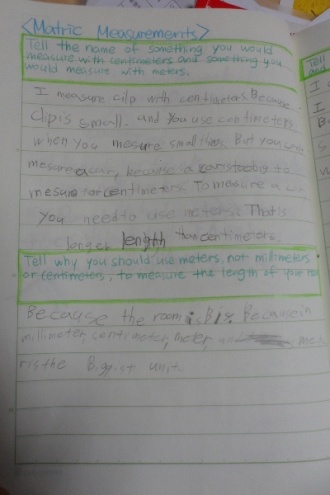 <Matric Measurements>
Tell the name of something you would
measure with centimeters and something you
would measure with meters.
I measure clip with centimeters. Because
clip is small. and you use centimeters
when you mesure small But you
mesure a car, because a car is to
mesure for centimeters. To measure a car
you need to use meters. That is
longer length than centimeters.
Tell why you should use meters, not millimeters
or centimeters, to measure the length of your room
Because the room is Big. Because in
millimeter, centimeter, meter, and me
r is the Biggist unit.
Tell
and
I